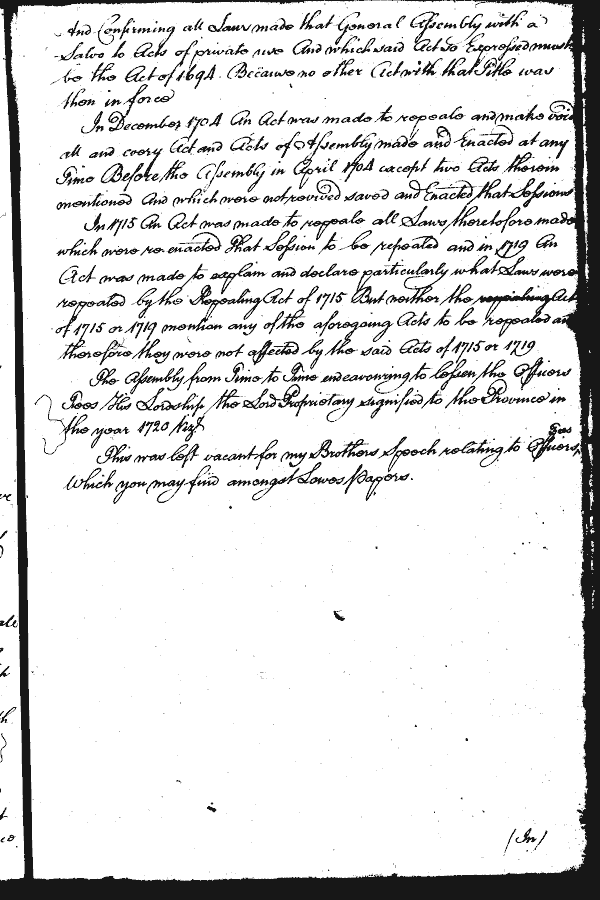 And Confirming all Laws made that General Assembly with a
Salvo to Acts of private use And which said Act so Expressed must
be the Act of 1694. Because no other Act with that Title was
then in force
In December 1704 An Act was made to repeale and make void
all and every Act and Acts of Assembly made and Enacted at any
Time Before the Assembly in April 1704 except two Acts therein
mentioned And which were not revived saved and Enacted that Sessions
In 1715 An Act was made to repeale all Laws theretofore made
which were re-enacted That Session to be repealed and in 1719 An
Act was made to explain and declare particularly what Laws were
repealed by the Repealing Act of 1715 But neither the repealing Act
of 1715 or 1719 mention any of the aforegoing Acts to be repealed an
therefore they were not affected by the said Acts of 1715 or 1719
The Assembly from Time to Time endeavouring to lessen the Officers
Fees His Lordship the Lord Proprietary signified to the Province in
the year 1720 Vizt
This was left vacant for my Brothers Speech relating to Officers
Fees
Which you may find amongst Lowes Papers.
(In)